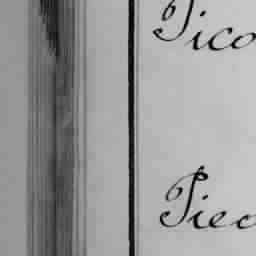 Pico
Piec